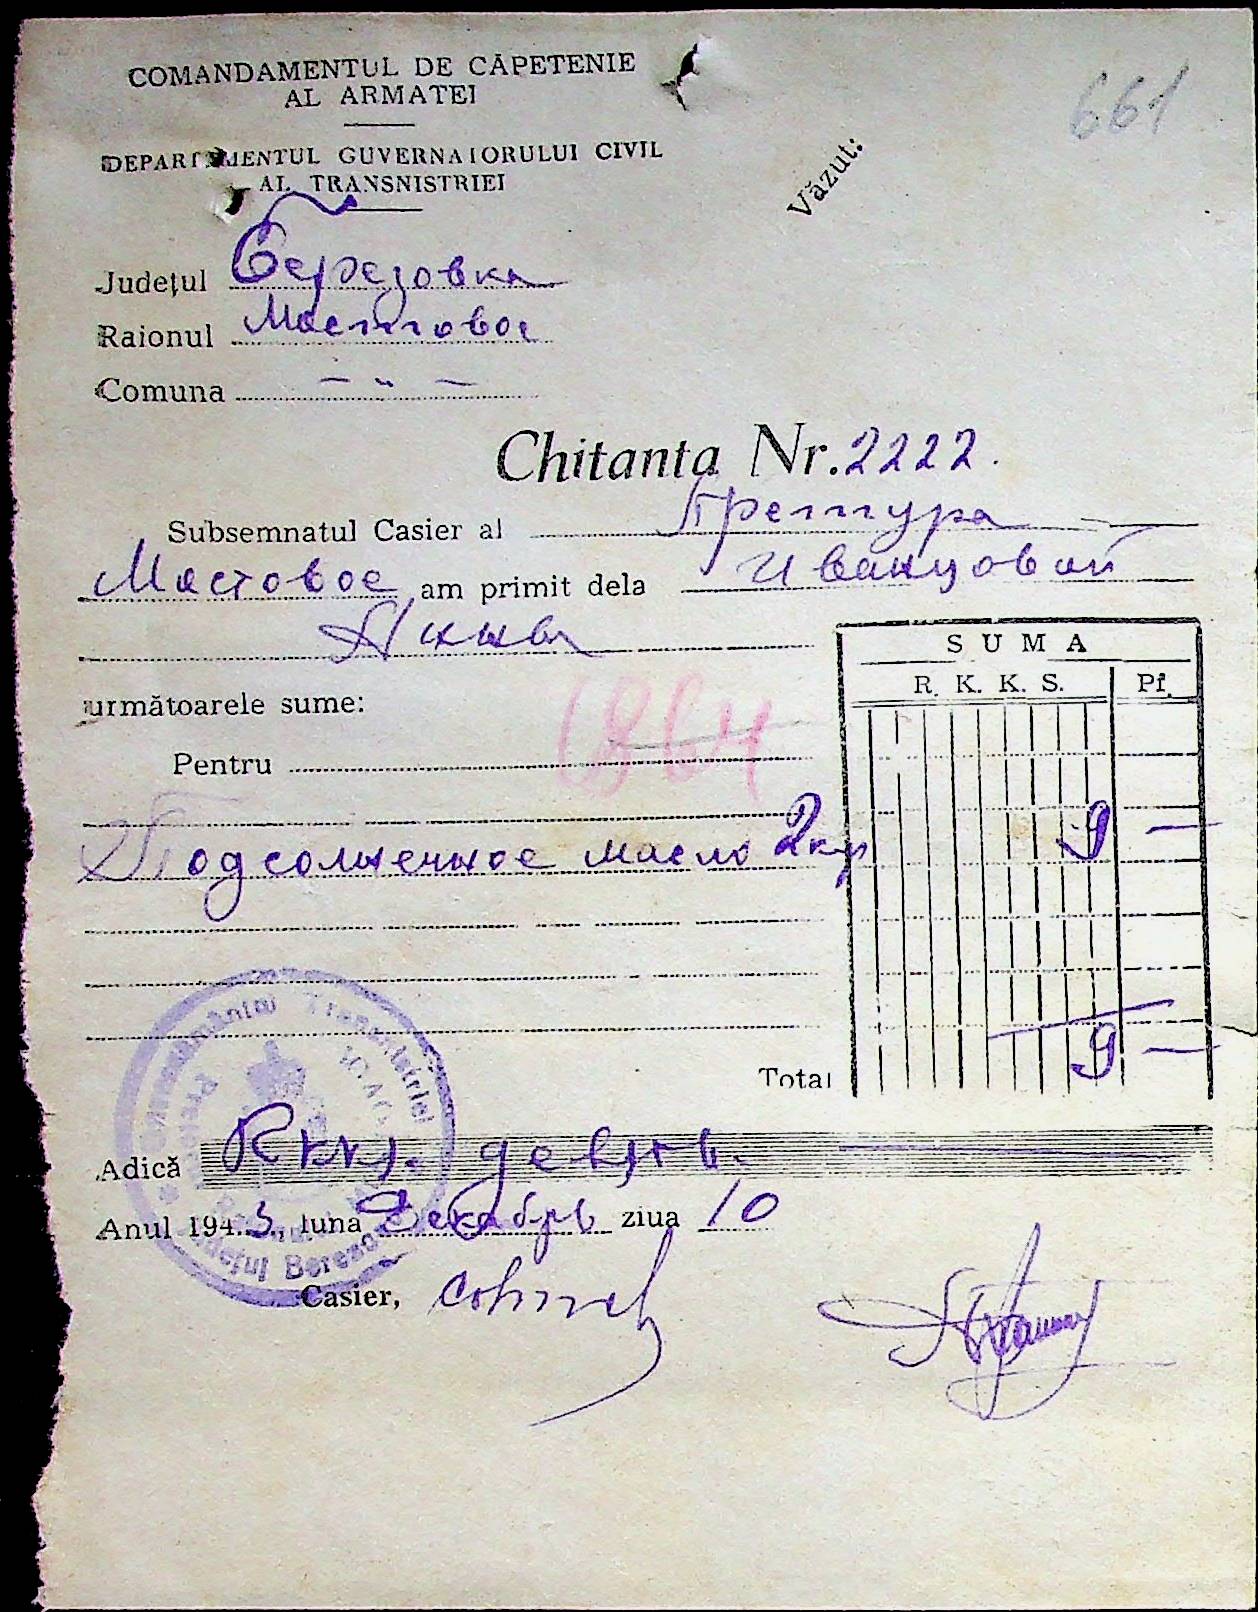 COMANDAMENTUL DE CĂPETENIE
AL ARMATEI
661
DEPARTAMENTUL GUVERNATORULUI CIVIL
AL TRANSNISTRIEI
Văzut:
Județul Березовка
Raionul Мостовое
Comuna — „ —
Chitanta Nr. 2222.
Subsemnatul Casier al Претура
Мостовое am primit dela Иванцовой
Анны
SUMA
R. K. K. S. Pf.
următoarele sume:
1864
Pentru
Подсолнечное масло 2кгр 9 —
Total 9 —
Adică Rккs. девять.
Anul 1943, luna Декабрь ziua 10
Casier,
Guvernământul Transnistriei
Județul Berezovca